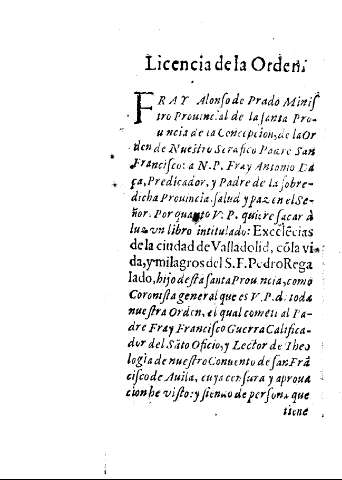 Licencia de la Orden.
FRAY Alonso de Prado Minis
tro Prouincial de la santa Pro-
uincia de la Concepcion, de la Or
den de Nuestro Serafico Padre San
Francisco: a N. P. Fray Antonio Da
ça, Predicador, y Padre de la sobre-
dicha Prouincia, salud y paz en el Se-
ñor. Por quanto V. P. quiere sacar à
luz vn libro intitulado: Excelẽcias
de la ciudad de Valladolid, cõ la vi-
da, y milagros del S. F. Pedro Rega
lado, hijo desta santa Prouincia, como
Coronista general que es V. P. de toda
nuestra Orden, el qual cometi al Pa-
dre Fray Francisco Guerra Califica-
dor del Sãto Oficio, y Lector de Theo
logia de nuestro Conuento de san Frã
cisco de Auila, cuya censura y aproua
cion he visto: y siendo de persona que
tiene